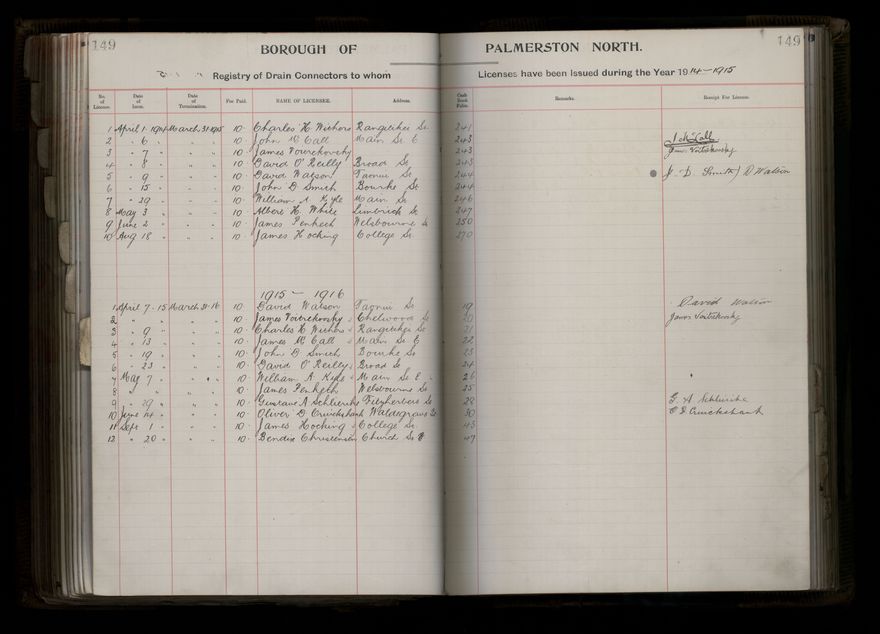 149 149
BOROUGH OF PALMERSTON NORTH.
Registry of Drain Connectors to whom Licenses have been Issued during the Year 1914-1915
No. of License. Date of Issue. Date of Termination. Fee Paid. NAME OF LICENSEE. Address. Cash Book Folio. Remarks. Receipt For License.
1 April 1. 1914 March 31. 1915 10. Charles H Withers Rangitikei St. 241
2 " 6 " " " 10. John McCall Main St. E 243 J McCall
3 " 7 " " " 10. James Voitrekovsky 243 James Voitrekovsky
4 " 8 " " " 10. David O'Reilly Broad St 243
5 " 9 " " " 10. David Watson Taonui St. 244 J. D. Smith / D Watson
6 " 15 " " " 10. John D Smith Bourke St 244
7 " 29 " " " 10. William A. Kyle Main St. 246
8 May 3 " " " 10. Albert H. White Limbrick St. 247
9 June 2 " " " 10. James Penketh Welbourne St 250
10 Aug 18 " " " 10. James Hocking College St. 270
1915 - 1916
1 April 7. 15 March 31. 16 10. David Watson Taonui St 19 David Watson
2 " " " " " 10. James Voitrekovsky Chelwood St 20 James Voitrekovsky
3 " 9 " " " 10. Charles H Withers Rangitikei St 21
4 " 13 " " " 10. James McCall Main St E 22
5 " 19 " " " 10. John D Smith Bourke St 23
6 " 23 " " " 10. David O'Reilly Broad St 24
7 May 7 " " " 10. William A Kyle Main St E 26
8 " " " " " 10. James Penketh Welbourne St 25
9 " 29 " " " 10. Gustave A Schlierike Fitzherbert St 28 G. A. Schlierike
10 June 14 " " " 10. Oliver D. Cruickshank Waldegrave St 30 O D Cruickshank
11 Sept 1 " " " 10. James Hocking College St. 43
12 " 20 " " " 10. Bendix Christensen Church St 47